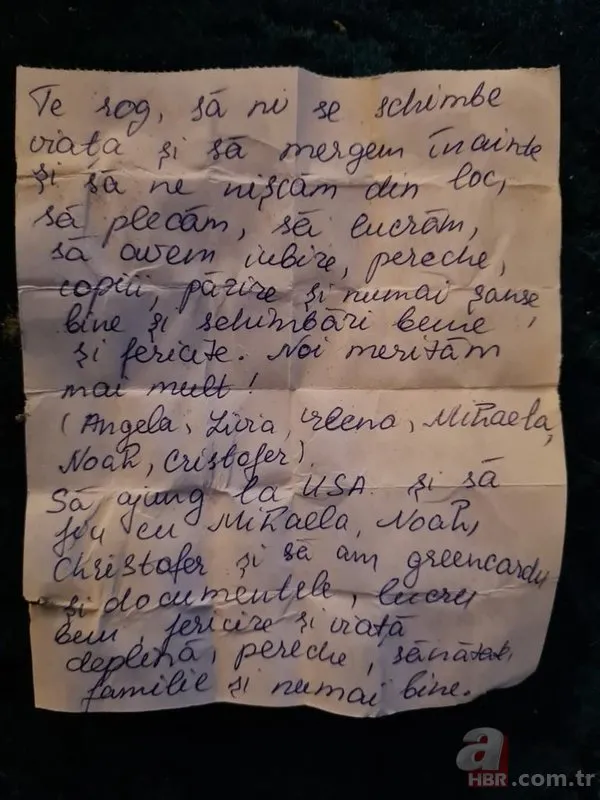 Te rog, să ni se schimbe
viața și să mergem înainte
și să ne nișcăm din loc,
să plecăm, să lucrăm,
să avem iubire, pereche,
copiii, și numai șanse,
bine și schimbări bune
și fericite. Noi merităm
mai mult!
(Angela, Livia, Mihaela,
Noah, Cristofer)
Să ajung la USA și să
fiu cu Mihaela, Noah,
Christofer și să am greencardu
și documentele, lucru
bun, fericire și viață
deplină, pereche, sănătate,
familie și numai bine.
a
HBR.com.tr